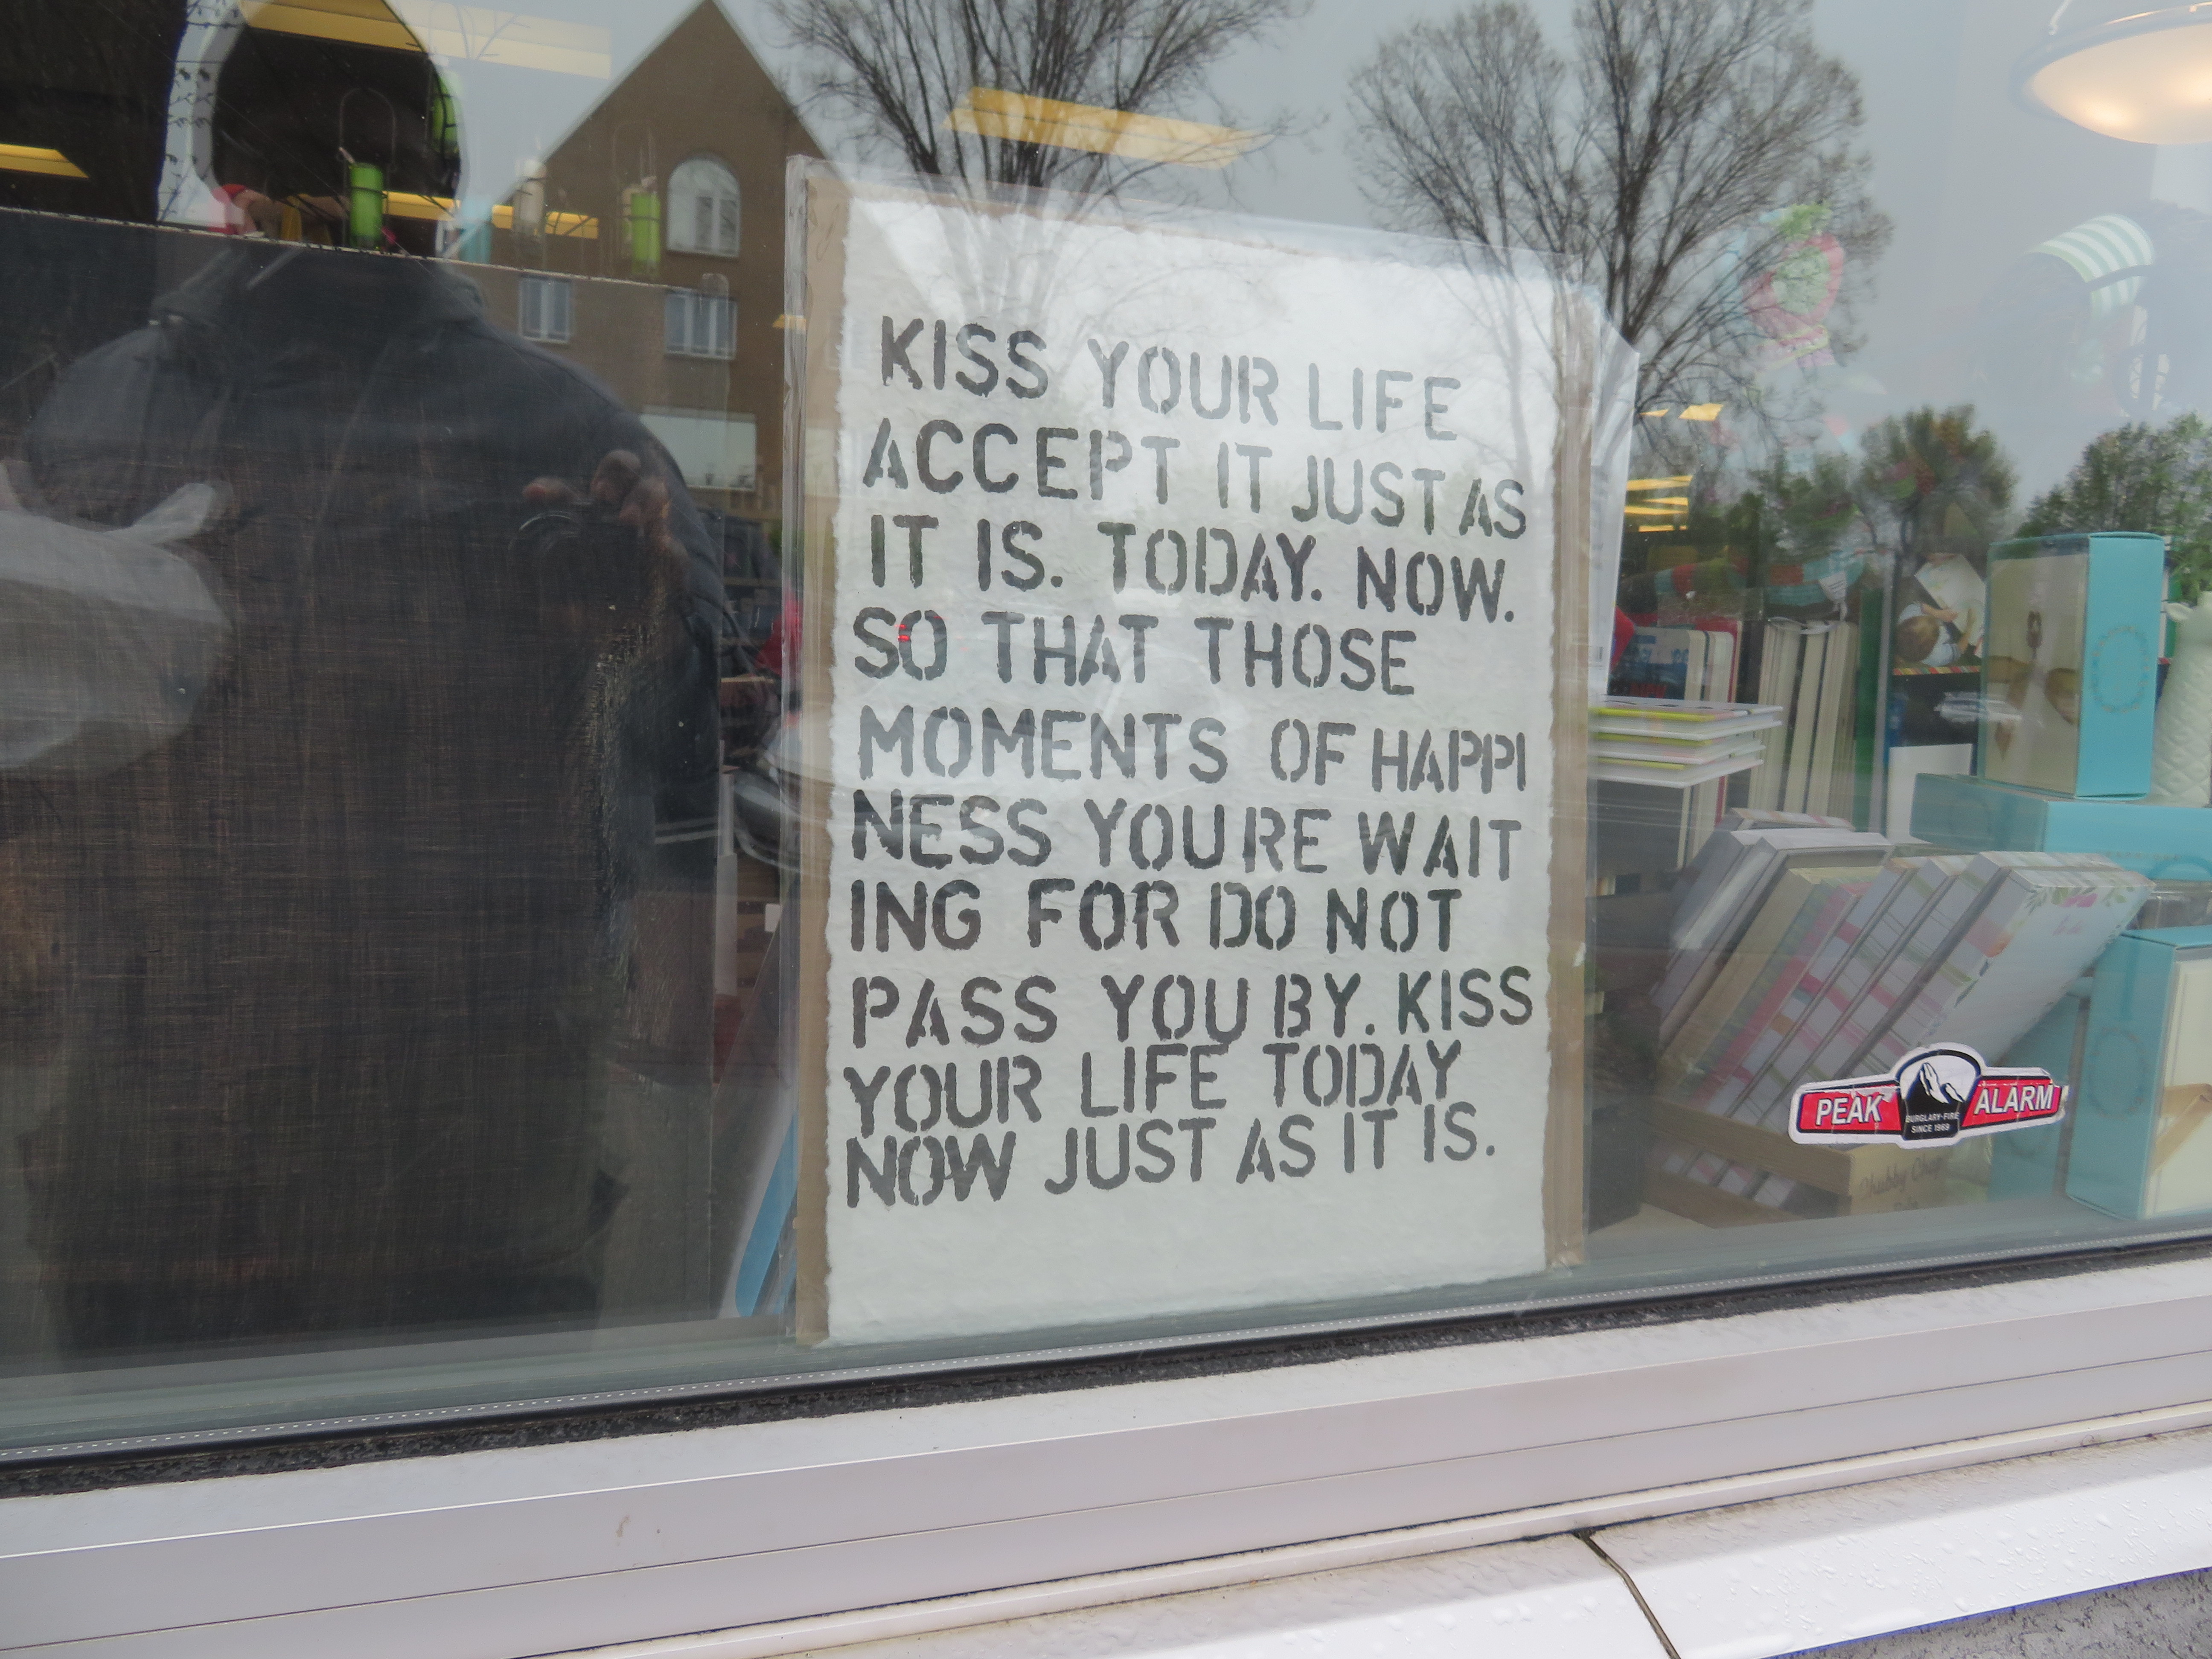 KISS YOUR LIFE
ACCEPT IT JUST AS
IT IS. TODAY. NOW.
SO THAT THOSE
MOMENTS OF HAPPI
NESS YOURE WAIT
ING FOR DO NOT
PASS YOU BY. KISS
YOUR LIFE TODAY
NOW JUST AS IT IS.
PEAK ALARM
BURGLARY-FIRE
SINCE 1969